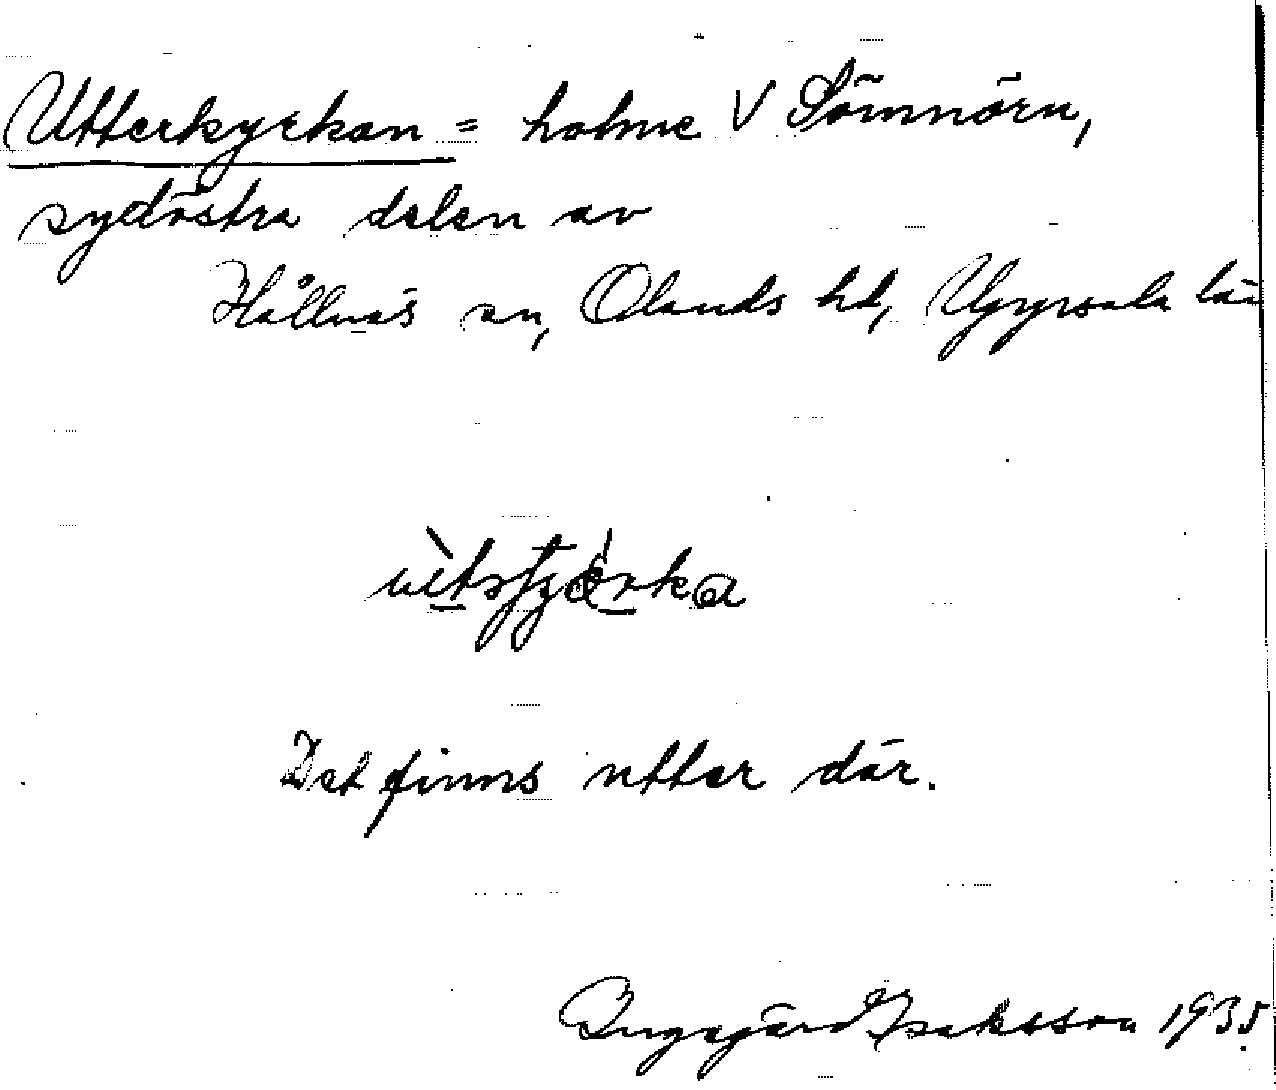 Utterkyrkan = holme V Sömnörn,
sydöstra delen av
Hållnäs sn, Olands hd, Uppsala län
Det finns utter där.
Ingegärd Isaksson 1935.